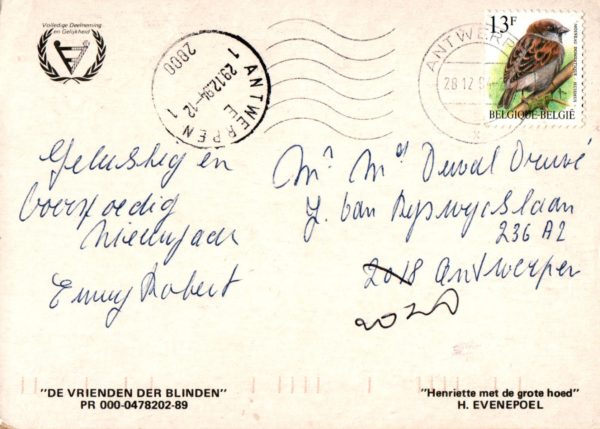 Volledige Deelneming
en Gelijkheid
ANTWERPEN 1
29.12.94-12
E
1
2000
ANTWERPEN
28 12 94
13F
BELGIQUE·BELGIË
Gelukkig en
Voorspoedig
Nieuwjaar
Emmy Robert
Mr Md Duval
J. Van Rijswijcklaan
236 A2
2018 Antwerpen
2020
"DE VRIENDEN DER BLINDEN"
PR 000-0478202-89
"Henriette met de grote hoed"
H. EVENEPOEL